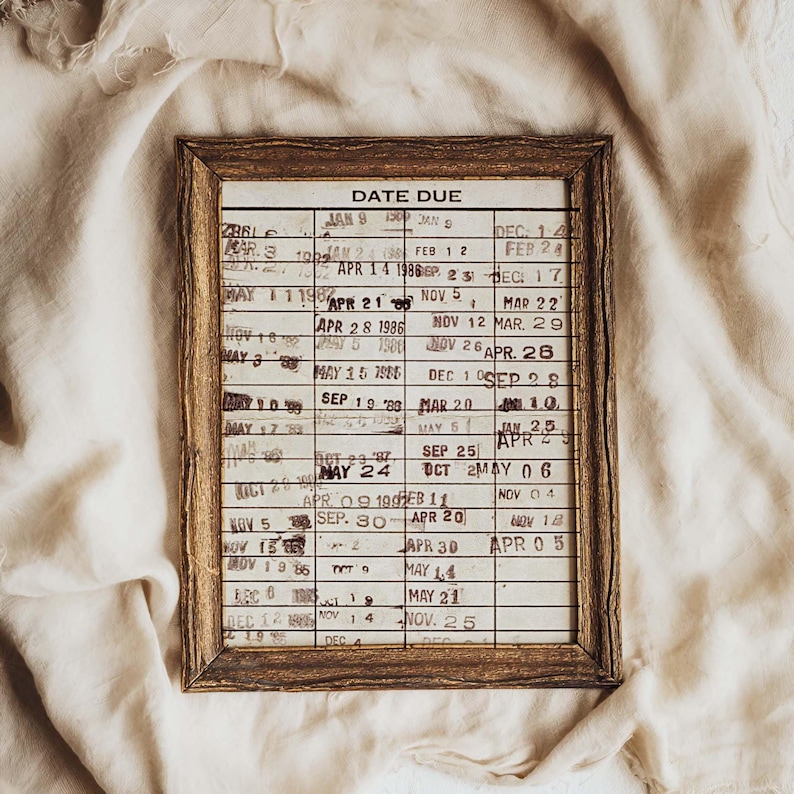 DATE DUE
JAN 9 1986
JAN 9
DEC. 14
MAR. 3 1982
JAN 24
FEB 12
FEB 24
APR. 27 1982
APR 14 1986
SEP. 23
DEC. 17
MAY 11 1982
APR 21 '86
NOV 5
MAR 22
NOV 16 '82
APR 28 1986
NOV 12
MAR. 29
MAY 3 '83
MAY 5 1986
NOV 26
APR. 28
MAY 15 1986
DEC 10
SEP 28
MAY 10 '83
SEP 19 '86
MAR 20
JAN 10
MAY 17 '83
MAY 5
JAN 25
APR 29
OCT 23 '87
SEP 25
MAY 24
OCT 2
MAY 06
OCT 28
APR. 09 1992
FEB 11
NOV 04
NOV 5
SEP. 30
APR 20
NOV 18
NOV 15 '85
APR 30
APR 05
NOV 19 '85
OCT 9
MAY 14
DEC 6 1985
OCT 19
MAY 21
DEC 12 1985
NOV 14
NOV. 25
DEC 19 '85
DEC 4
DEC